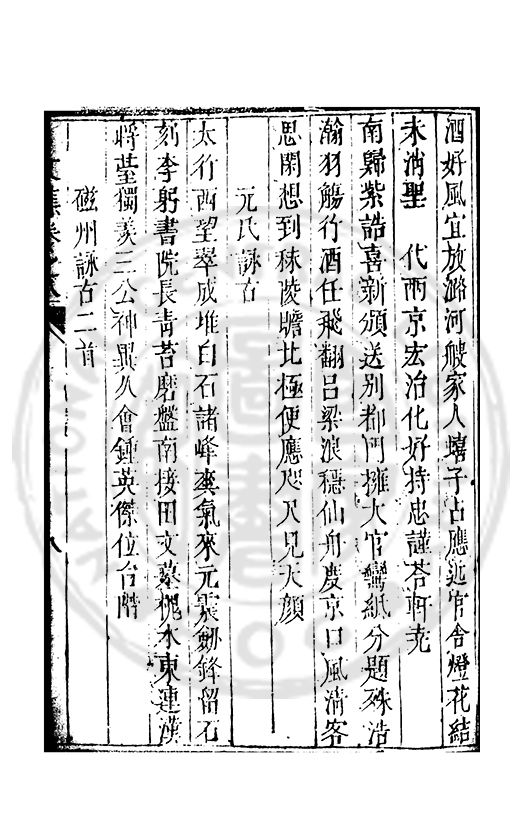 酒好風宜放潞河艘家人蟢子占應近官舍燈花結
未消聖　代兩京宏治化好持忠讜荅軒尭
南歸紫誥喜新頒送別都門擁大官蠻紙分題殊浩
瀚羽觴行酒任飛翻吕梁浪穩仙舟慶京口風清客
思閑想到秣陵瞻北極便應咫尺見天顔
元氏詠古
太行西望翠成堆白石諸峰爽氣來元震劒鋒留石
刻李躬書院長青苔磨盤南接田文墓槐水東連漢
將臺獨羨三公神異久會鍾英傑位台階
磁州詠古二首